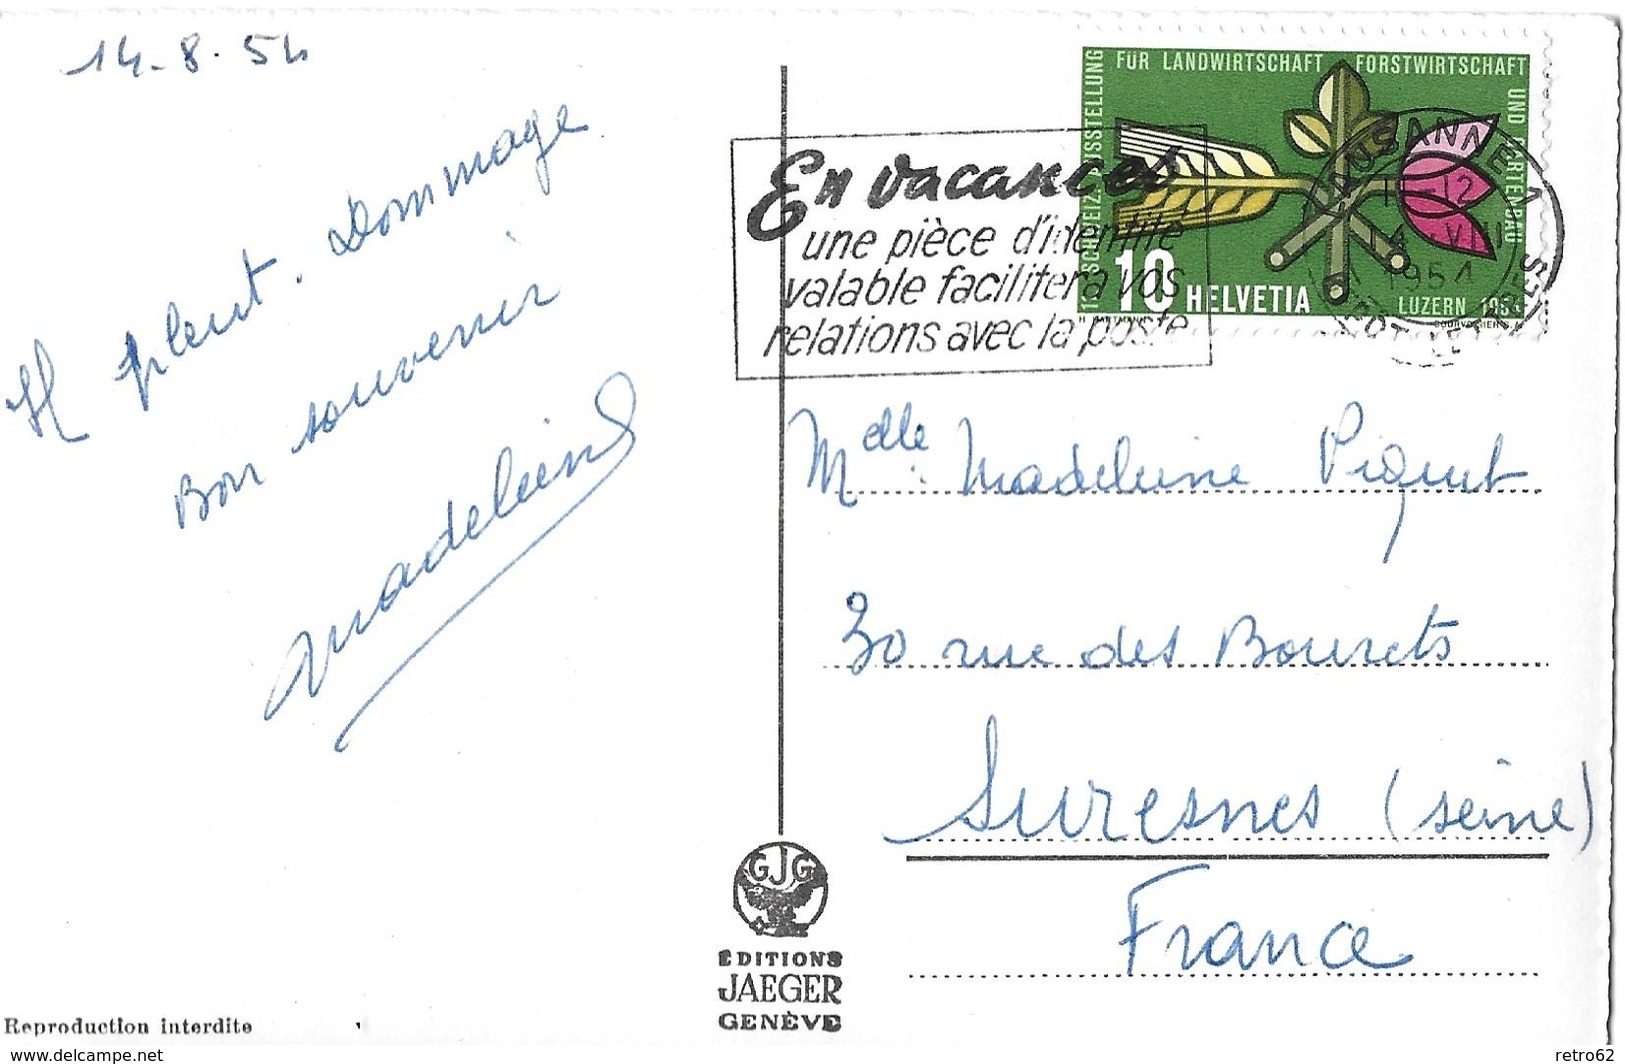 14.8.54
Il pleut. Dommage
Bon souvenir
Madeleine
En vacances
une pièce d'identité
valable facilitera vos
relations avec la "poste"
SCHWEIZ. AUSSTELLUNG FÜR LANDWIRTSCHAFT FORSTWIRTSCHAFT UND GARTENBAU
10 HELVETIA
LUZERN 1954
COURVOISIER S.A.
LAUSANNE 1
11-12
14.VIII
1954
EXP. LETTRES
Mdelle Madeleine Piquet
30 rue des Bourets
Suresnes (seine)
France
GJG
EDITIONS
JAEGER
GENÈVE
Reproduction interdite
www.delcampe.net
retro62